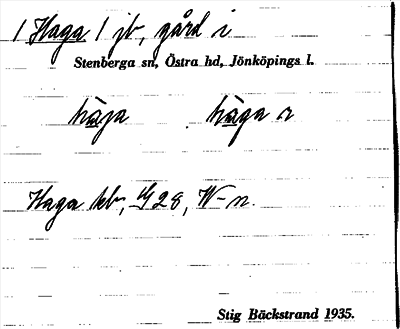 / Haga / jb, gård i
Stenberga sn, Östra hd, Jönköpings l.
håga håga
Haga kb, 28, W-n.
Stig Bäckstrand 1935.